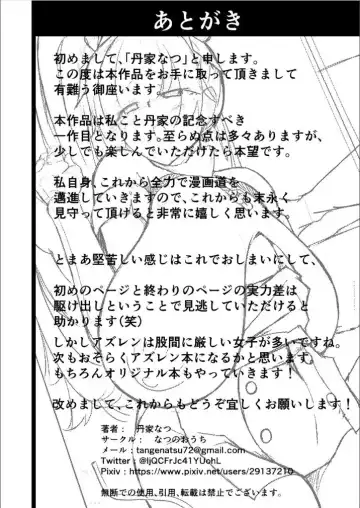 あとがき
初めまして、「丹家なつ」と申します。
この度は本作品をお手に取って頂きまして
有難う御座います。
本作品は私こと丹家の記念すべき
一作目となります。至らぬ点は多々ありますが、
少しでも楽しんでいただけたら本望です。
私自身、これから全力で漫画道を
邁進していきますので、これからも末永く
見守って頂けると非常に嬉しく思います。
とまあ堅苦しい感じはこれでおしまいにして、
初めのページと終わりのページの実力差は
駆け出しということで見逃していただけると
助かります(笑)
しかしアズレンは股間に厳しい女子が多いですね。
次もおそらくアズレン本になるかと思います。
もちろんオリジナル本もやっていきます！
改めまして、これからもどうぞ宜しくお願いします！
著者： 丹家なつ
サークル： なつのおうち
メール：tangenatsu72@gmail.com
Twitter：@IjQCFrJc41YUohL
Pixiv：https://www.pixiv.net/users/29137210
無断での使用、引用、転載は禁止でございます。